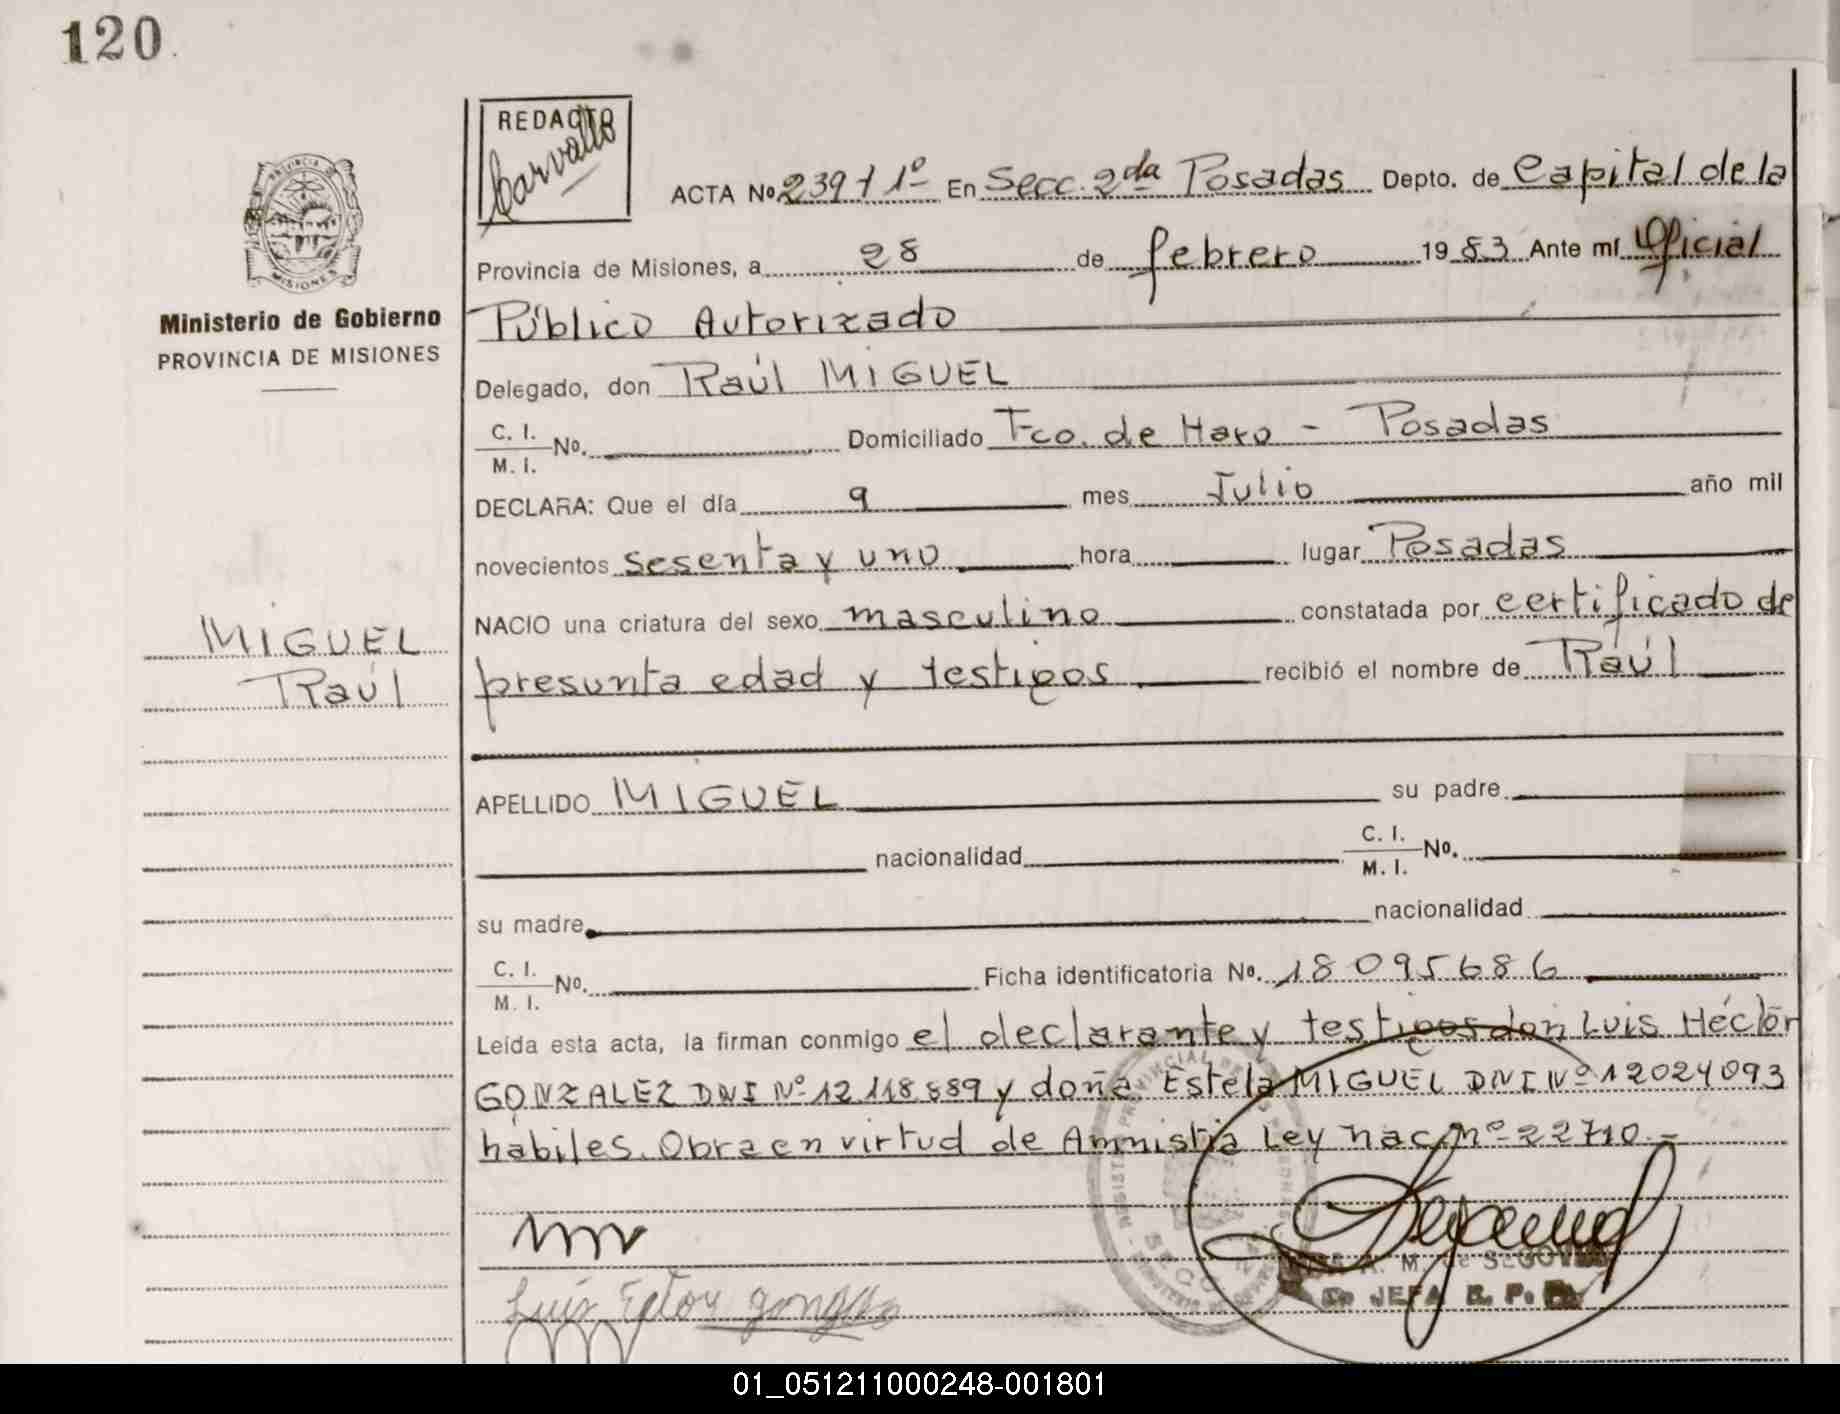 120
REDACTO
Carvallo
ACTA Nº 239 t 1º En Secc. 2da Posadas Depto. de Capital de la
PROVINCIA
MISIONES
Provincia de Misiones, a 28 de febrero 1983 Ante mí Oficial
Ministerio de Gobierno
PROVINCIA DE MISIONES
Público Autorizado
Delegado, don Raúl MIGUEL
C. I.
M. I. Nº. Domiciliado Fco. de Haro - Posadas
DECLARA: Que el día 9 mes Julio año mil
novecientos sesenta y uno hora lugar Posadas
NACIO una criatura del sexo masculino constatada por certificado de
MIGUEL
Raúl
presunta edad y testigos recibió el nombre de Raúl
APELLIDO MIGUEL su padre
nacionalidad C. I.
M. I. Nº.
su madre nacionalidad
C. I.
M. I. Nº. Ficha identificatoria Nº. 18095686
Leída esta acta, la firman conmigo el declarante y testigos don Luis Héctor
GONZALEZ DNI Nº 12.118.889 y doña Estela MIGUEL DNI Nº 12024093
hábiles. Obra en virtud de Amnistía Ley nac. nº 22710.-
A. M. de SEGOVIA
JEFA R. P. P.
Luis Ector gonza
01_051211000248-001801